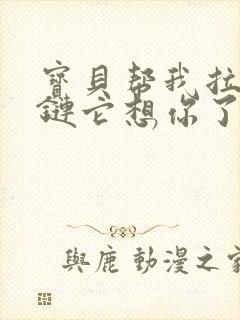 寶貝幫我拉
鏈它想你了
與鹿動漫之家